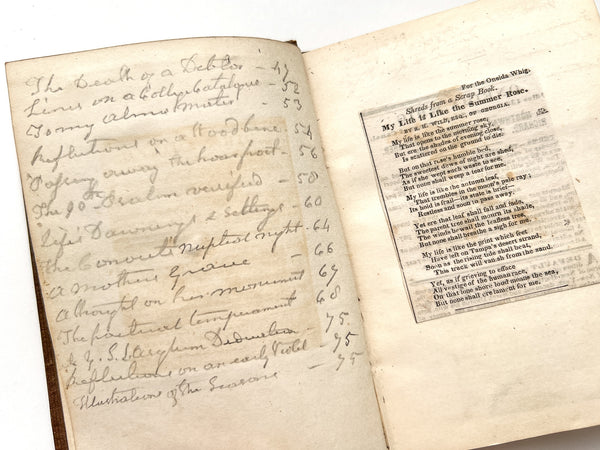 The Death of a Debtor - 49
Lines on a College Catalogue - 52
To my Alma Mater - 53
Reflections on a Woodbine 54
Passing away the hoar frost - 56
The 90th Psalm versified - 58
Life's Dawnings & Settings - 60
The Convicts Nuptial night - 64
A Mothers Grave - 66
A thought on her monument 67
The poetical temperament 68
N.Y.S.L. Asylum Dedication - 75
Reflections on an early Violet 75
Illustrations of the Seasons - 75
For the Oneida Whig.
Shreds from a Scrap Book.
My Life is Like the Summer Rose.
BY R. H. WILD, ESQ., OF GEORGIA.
My life is like the summer rose,
That opens to the morning sky,
But ere the shades of evening close,
Is scattered on the ground to die.
But on that rose's humble bed,
The sweetest dews of night are shed,
As if she wept such waste to see,
But none shall weep a tear for me.
My life is like the autumn leaf,
That trembles in the moon's pale ray;
Its hold is frail—its state is brief,
Restless and soon to pass away.
Yet ere that leaf shall fall and fade,
The parent tree shall mourn its shade,
The winds bewail the leafless tree,
But none shall breathe a sigh for me.
My life is like the print which feet
Have left on Tampa's desert strand,
Soon as the rising tide shall beat,
This track will vanish from the sand.
Yet, as if grieving to efface
All vestige of the human race,
On that lone shore loud moans the sea,
But none shall e'er lament for me.